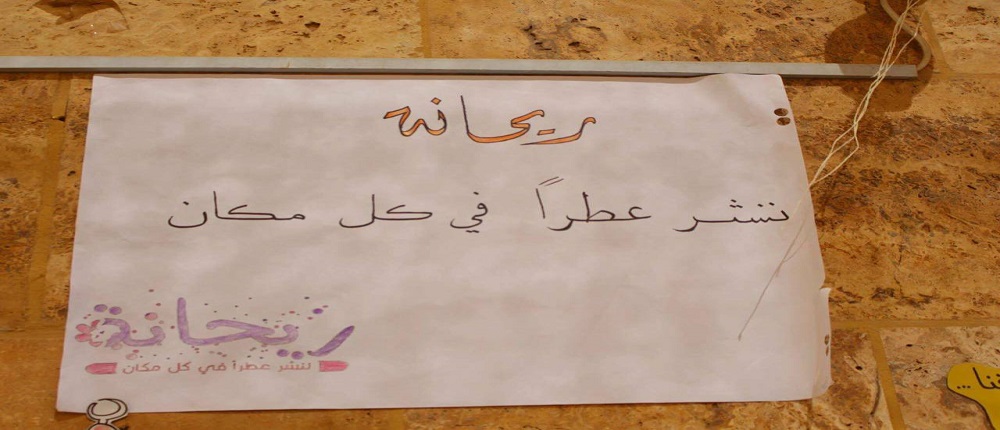 ريحانة
ننثر عطراً في كل مكان
ريحانة
لننشر عطراً في كل مكان